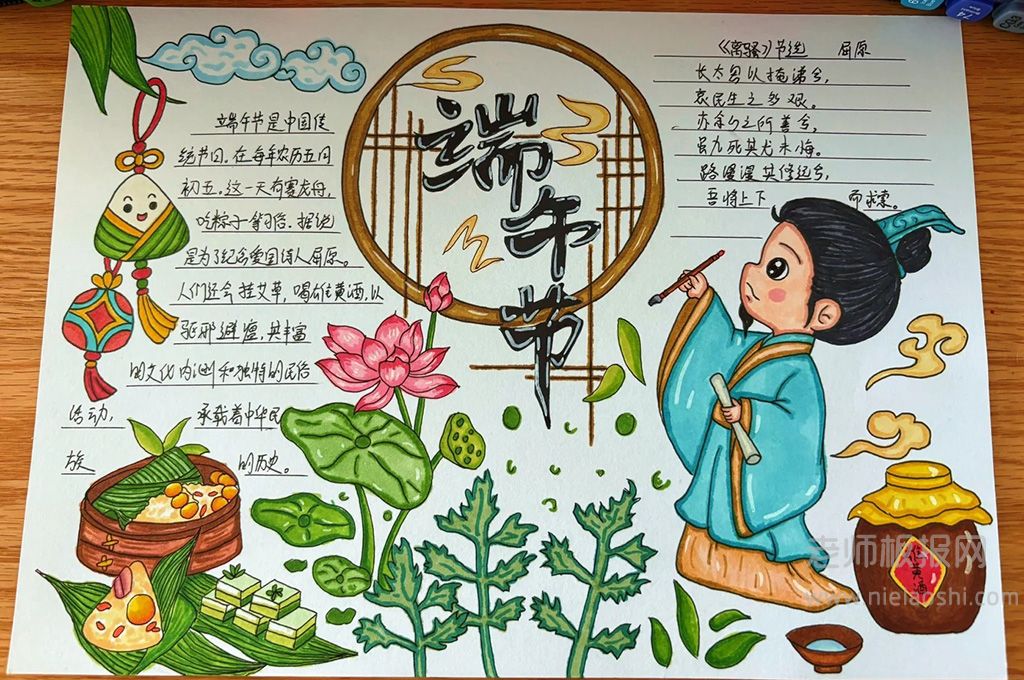 端午节
端午节是中国传
统节日。在每年农历五月
初五。这一天有赛龙舟，
吃粽子等习俗。据说
是为了纪念爱国诗人屈原。
人们还会挂艾草，喝雄黄酒，以
驱邪避瘟，其丰富
的文化内涵和独特的民俗
活动， 承载着中华民
族 的历史。
《离骚》节选 屈原
长太息以掩涕兮，
哀民生之多艰。
亦余心之所善兮，
虽九死其犹未悔。
路漫漫其修远兮，
吾将上下 而求索。
雄黄酒
老师板报网
www.nielaoshi.com
74